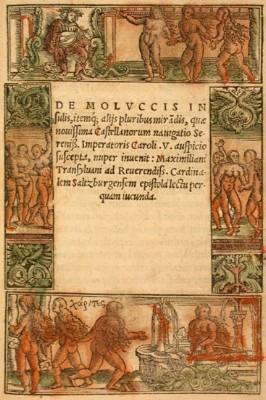 DE MOLVCCIS IN
sulis, itemq; alijs pluribus mirãdis, quæ
nouissima Castellanorum nauigatio Se-
reniss. Imperatoris Caroli .V. auspicio
suscepta, nuper inuenit: Maximiliani
Transyluani ad Reuerendiss. Cardina-
lem Saltzburgensem epistola lectu per-
quam iucunda.
ΧΑΡΙΤΕΣ